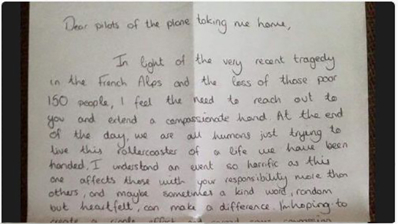 Dear pilots of the plane taking me home,
In light of the very recent tragedy
in the French Alps and the loss of those poor
150 people, I feel the need to reach out to
you and extend a compassionate hand. At the end
of the day, we are all humans just trying to
live this rollercoaster of a life we have been
handed. I understand an event so horrific as this
one affects those with your responsibility more than
others, and maybe sometimes a kind word, random
but heartfelt, can make a difference. I'm hoping to
create a ripple effect